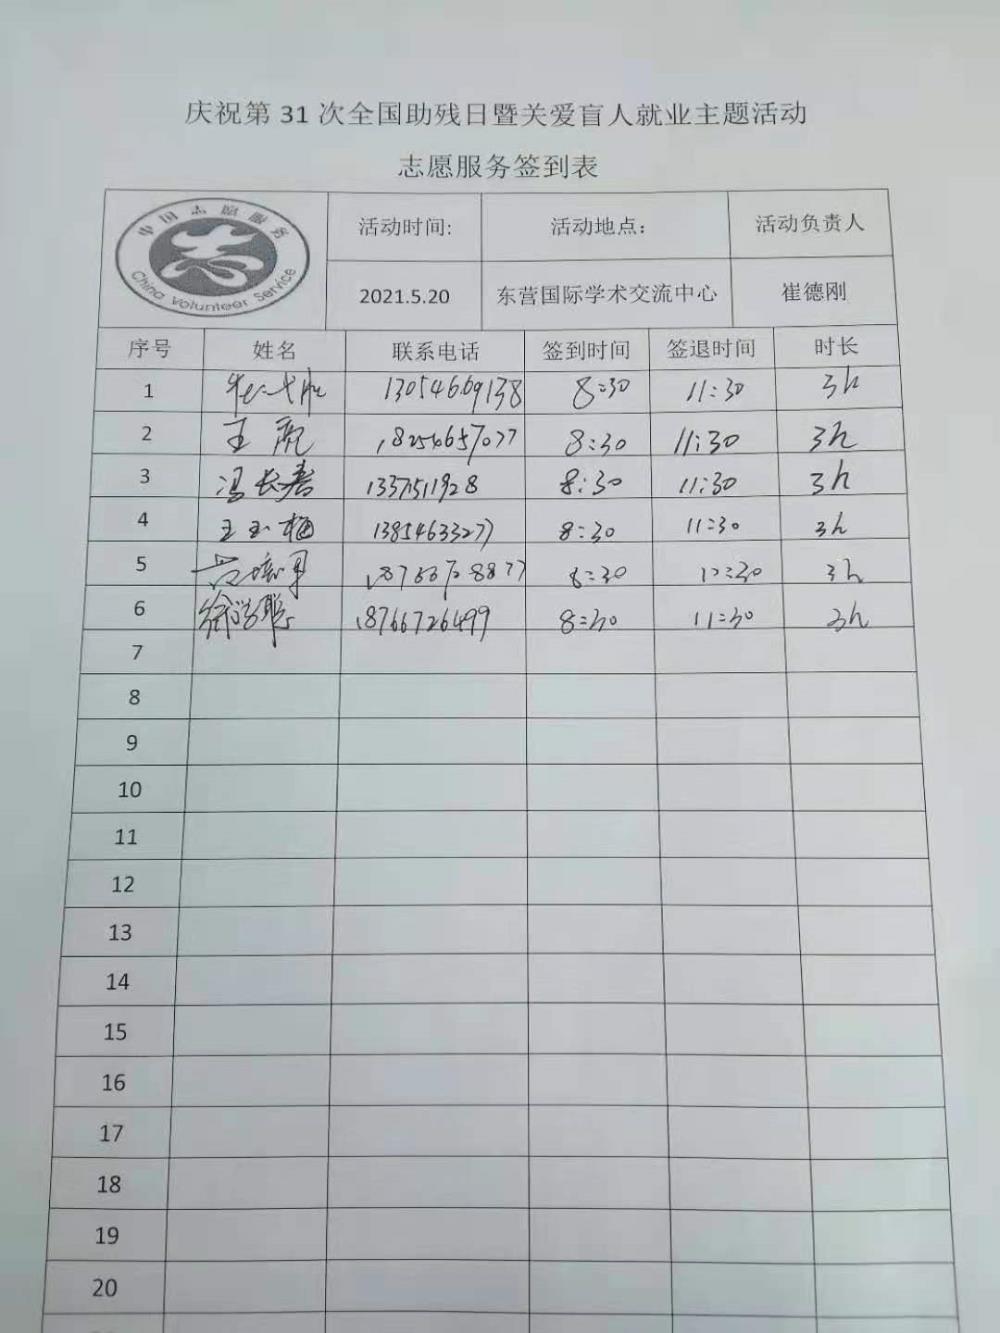 庆祝第 31 次全国助残日暨关爱盲人就业主题活动
志愿服务签到表
中国志愿服务
China Volunteer Service
活动时间: 活动地点: 活动负责人
2021.5.20 东营国际学术交流中心 崔德刚
序号 姓名 联系电话 签到时间 签退时间 时长
1 13054669138 8:30 11:30 3h
2 王 18254657077 8:30 11:30 3h
3 冯长春 13371511928 8:30 11:30 3h
4 王玉梅 13854633277 8:30 11:30 3h
5 8:30 3h
6 徐 18766726499 8:30 11:30 3h
7
8
9
10
11
12
13
14
15
16
17
18
19
20